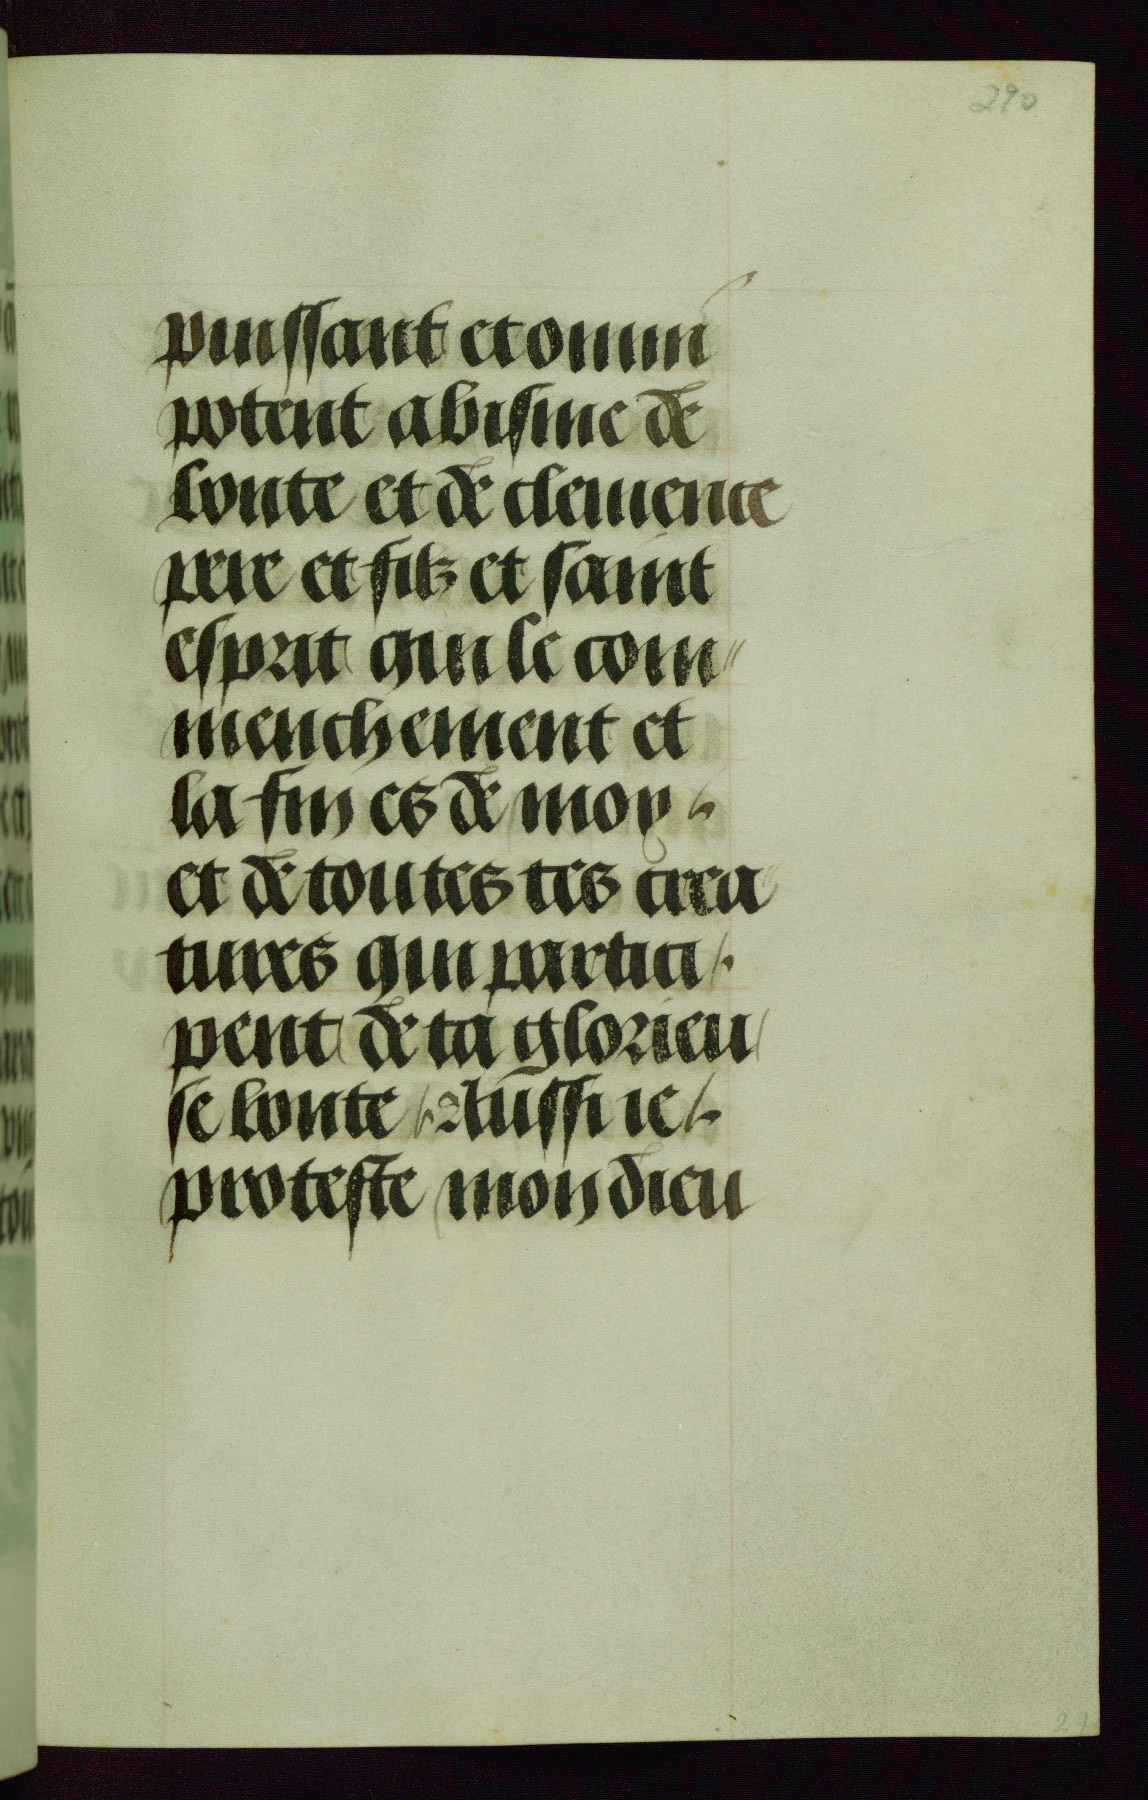 290
puissant et omni
potent abisme de
bonte et de clemence
pere et filz et saint
esprit qui le com〃
menchement et
la fin es de moy
et de toutes tes crea
tures qui partici
pent de ta glorieu
se bonte Aussi ie
proteste mon dieu